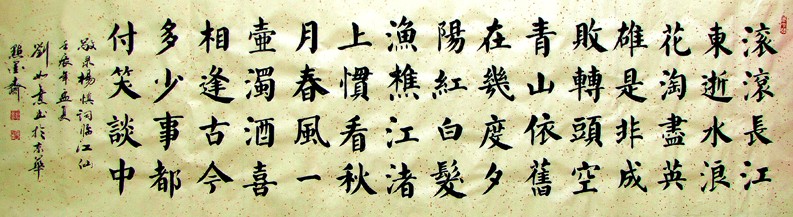 滾滾長江
東逝水浪
花淘盡英
雄是非成
敗轉頭空
青山依舊
在幾度夕
陽紅白髮
漁樵江渚
上慣看秋
月春風一
壺濁酒喜
相逢古今
多少事都
付笑談中
敬录楊慎詞临江仙
壬辰年孟夏
劉书於京華
墨齋